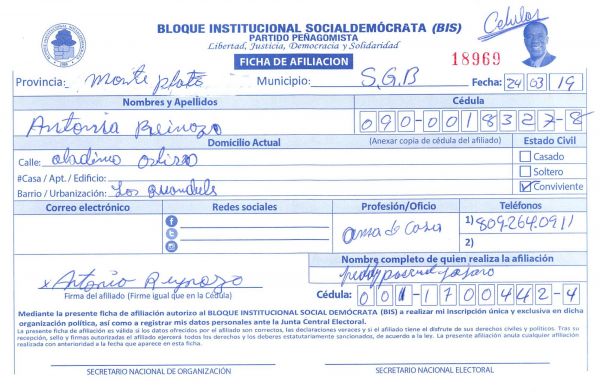 BLOQUE INSTITUCIONAL SOCIALDEMÓCRATA (BIS)
PARTIDO PEÑAGOMISTA
Libertad, Justicia, Democracia y Solidaridad
Celular
FICHA DE AFILIACION
18969
Provincia: Monte plata Municipio: S.G.B Fecha: 24 03 19
Nombres y Apellidos Cédula
Antonia Reinozo 090-0018327-8
Domicilio Actual (Anexar copia de cédula del afiliado) Estado Civil
Calle: Casado
#Casa / Apt. / Edificio: Soltero
Barrio / Urbanización: Los Conviviente
Correo electrónico Redes sociales Profesión/Oficio Teléfonos
ama de casa 1) 809-264-0911
2)
Nombre completo de quien realiza la afiliación
x Antonia Reynozo
Firma del afiliado (Firme igual que en la Cédula) Cédula: 001-1700442-4
Mediante la presente ficha de afiliación autorizo al BLOQUE INSTITUCIONAL SOCIAL DEMÓCRATA (BIS) a realizar mi inscripción única y exclusiva en dicha
organización política, así como a registrar mis datos personales ante la Junta Central Electoral.
La presente ficha de afiliación es válida si los datos ofrecidos por el afiliado son correctos, las declaraciones veraces y si el afiliado tiene el disfrute de sus derechos civiles y políticos. Tras su
recepción, sello y firmas autorizadas el afiliado ejercerá todos los derechos y los deberes estatutariamente sancionados, de acuerdo a la ley. La presente afiliación anula cualquier afiliación
realizada con anterioridad a la fecha que aparece en esta ficha.
SECRETARIO NACIONAL DE ORGANIZACIÓN SECRETARIO NACIONAL ELECTORAL